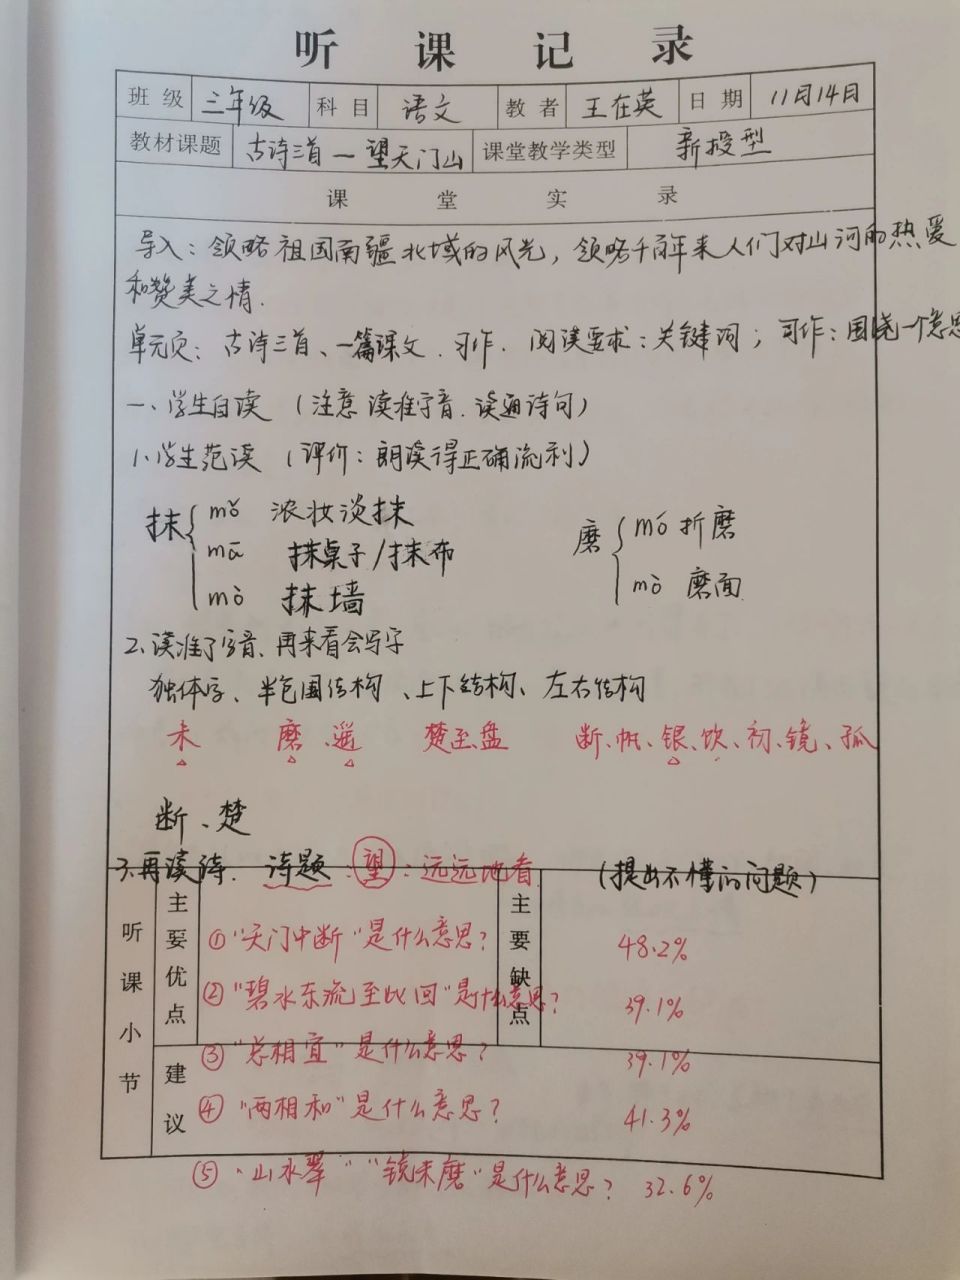 听课记录
班级 三年级 科目 语文 教者 王在英 日期 11月14日
教材课题 古诗三首—望天门山 课堂教学类型 新授型
课堂实录
导入：领略祖国南疆北域的风光，领略千百年来人们对山河的热爱
和赞美之情.
单元页：古诗三首、一篇课文.习作.阅读要求：关键词；习作：围绕一个意思
一、学生自读（注意读准字音.读通诗句）
1.学生范读（评价：朗读得正确流利）
抹 mǒ 浓妆淡抹
mā 抹桌子/抹布
mò 抹墙
磨 mó 折磨
mò 磨面
2.读准了字音、再来看会写字
独体字、半包围结构、上下结构、左右结构
未 磨、遥 楚至盘 断、帆、银、饮、初、镜、孤
断、楚
3.再读诗. 诗题：望：远远地看. （提出不懂的问题）
听课小节
主要优点
主要缺点
建议
①“天门中断”是什么意思？ 48.2%
②“碧水东流至此回”是什么意思？ 39.1%
③“总相宜”是什么意思？ 39.1%
④“两相和”是什么意思？ 41.3%
⑤“山水翠”“镜未磨”是什么意思？ 32.6%